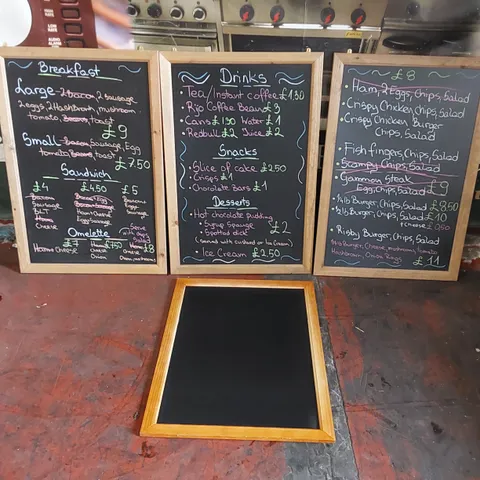 Breakfast
Large - 2 bacon, 2 sausage
2 eggs, 2 Hashbrown, mushroom
tomato, beans, toast
£9
Small - bacon, sausage, Egg
tomato, beans, toast
£7.50
Sandwich
£4
£4.50
£5
Bacon
Sausage
BLT
Ham
Cheese
Bacon + Egg
Ham Cheese
Egg Sausage
Bacon
Sausage
Omelette
£7
Ham
Cheese
£7.50
Ham
Cheese
Onion
Serve
with chips,
Salad
£8
Ham
Cheese
Onion, mushrooms
Drinks
• Tea/Instant coffee £1.30
• Rijo Coffee Bean £3
• Cans £1.90 Water £1
• Redbull £2 Juice £2
Snacks
• Slice of cake £2.50
• Crisps £1
• Chocolate Bars £1
Desserts
• Hot chocolate pudding
• Syrup Sponge
• Spotted dick
£2
(served with custard or Ice Cream)
• Ice Cream £2.50
£8
• Ham, 2 Eggs, Chips, Salad
• Crispy Chicken, Chips, Salad
• Crispy Chicken Burger
Chips, Salad
• Fish fingers, Chips, Salad
• Scampi, Chips, Salad
• Gammon Steak
Egg, Chips, Salad
£9
• 1/4 lb Burger, Chips, Salad £8.50
• 1/2 lb Burger, Chips, Salad £10
+ cheese
• Rigby Burger, Chips, Salad
Burger, Cheese, mushroom, tomato
Mushroom, Onion Rings
£11